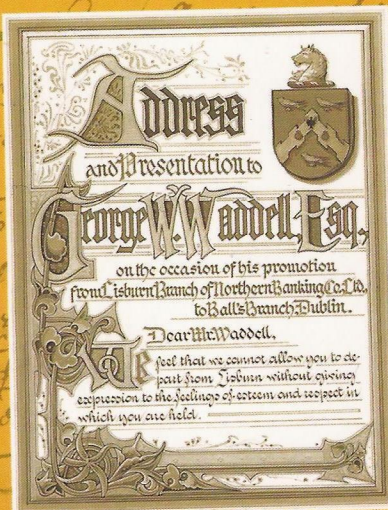 Address
and Presentation to
George W. Waddell, Esq.,
on the occasion of his promotion
from Lisburn Branch of Northern Banking Co. Ltd.,
to Ball's Branch, Dublin.
Dear Mr Waddell,
We feel that we cannot allow you to de-
part from Lisburn without giving
expression to the feelings of esteem and respect in
which you are held.